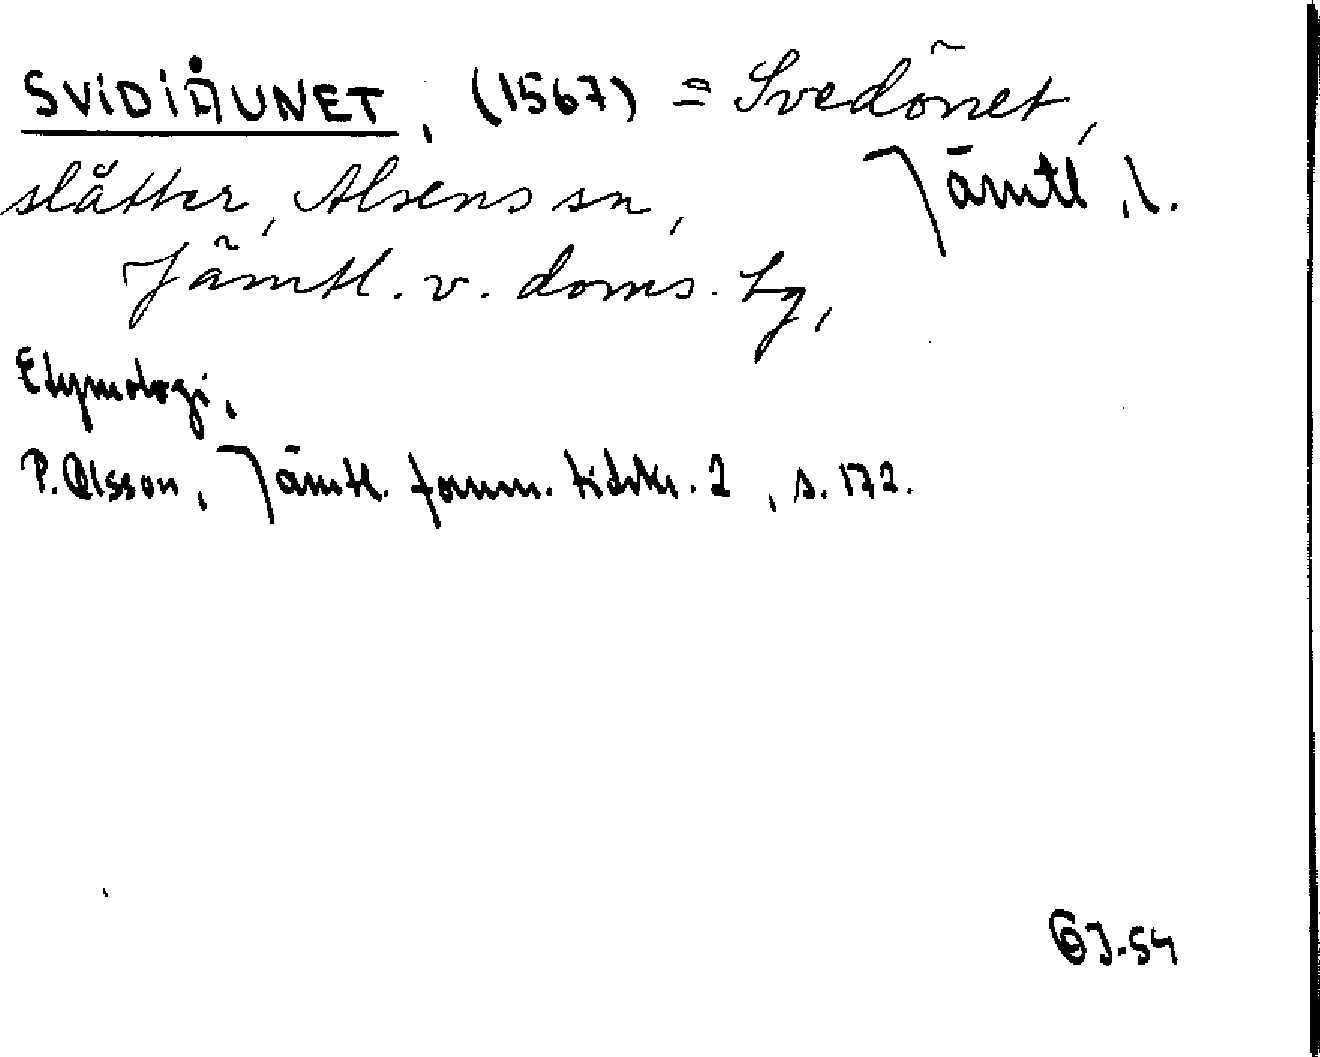 SVIDIÅUNET, (1567) = Svedönet,
slåtter, Alsens sn, Jämtl, l.
Jämtl. v. doms. hg,
Etymologi,
P. Olsson, Jämtl. fornm. tidskr. 2, s. 172.
GJ-54